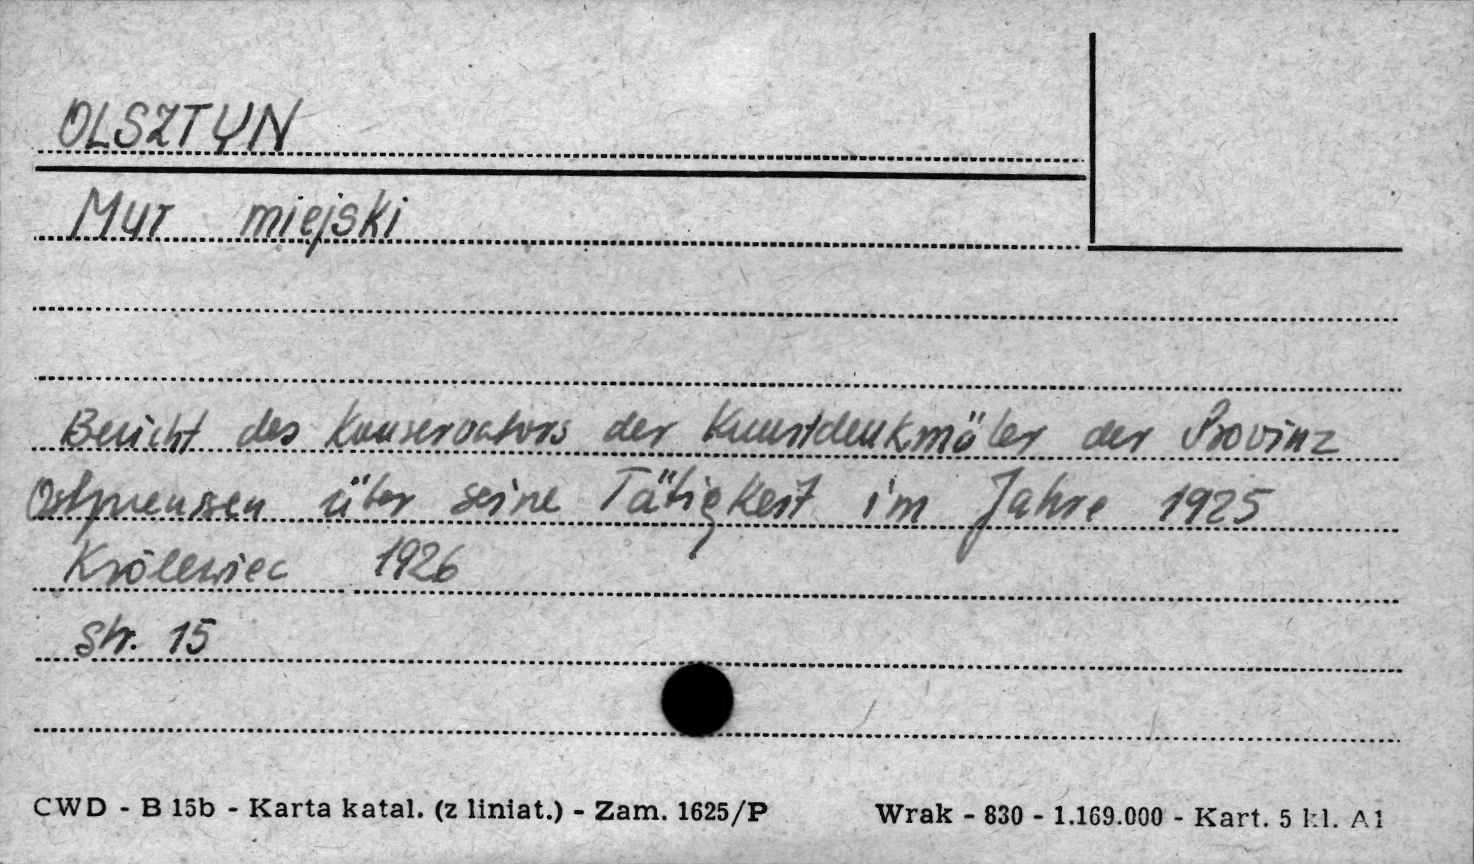 OLSZTYN
Mur miejski
Bericht des Konservators der Kunstdenkmäler der Provinz
Ostpreussen über seine Tätigkeit im Jahre 1925
Królewiec 1926
Str. 15
CWD - B 15b - Karta katal. (z liniat.) - Zam. 1625/P Wrak - 830 - 1.169.000 - Kart. 5 kl. A1